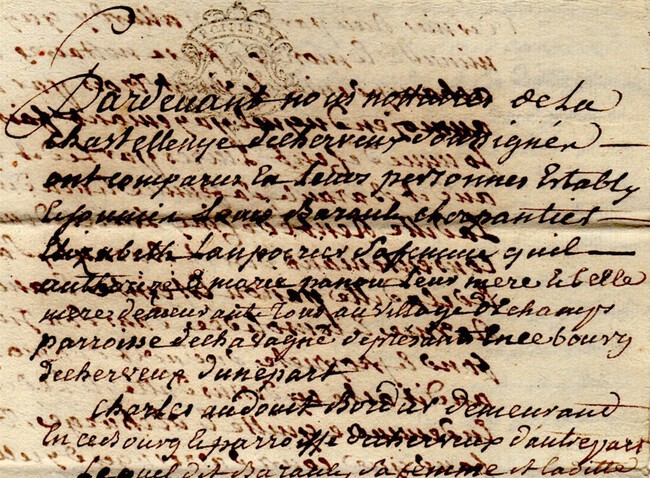 Pardevant nous nottaires de la
chastellenye de cherveux soussignéz
ont comparus en leurs personnes establys
et soumis Baraul charpantier
Elizabeth sa femme quil
authorize & marie panou leur mere et belle
mere demeurant tous au village d'échamps
parroisse de chavagné de presant en ce bourg
de cherveux d'une part
Charles audouit Bordier demeurand
en ce Bourg et parroisse de cherveux d'autre part
Lequel dit Baraul sa femme et laditte